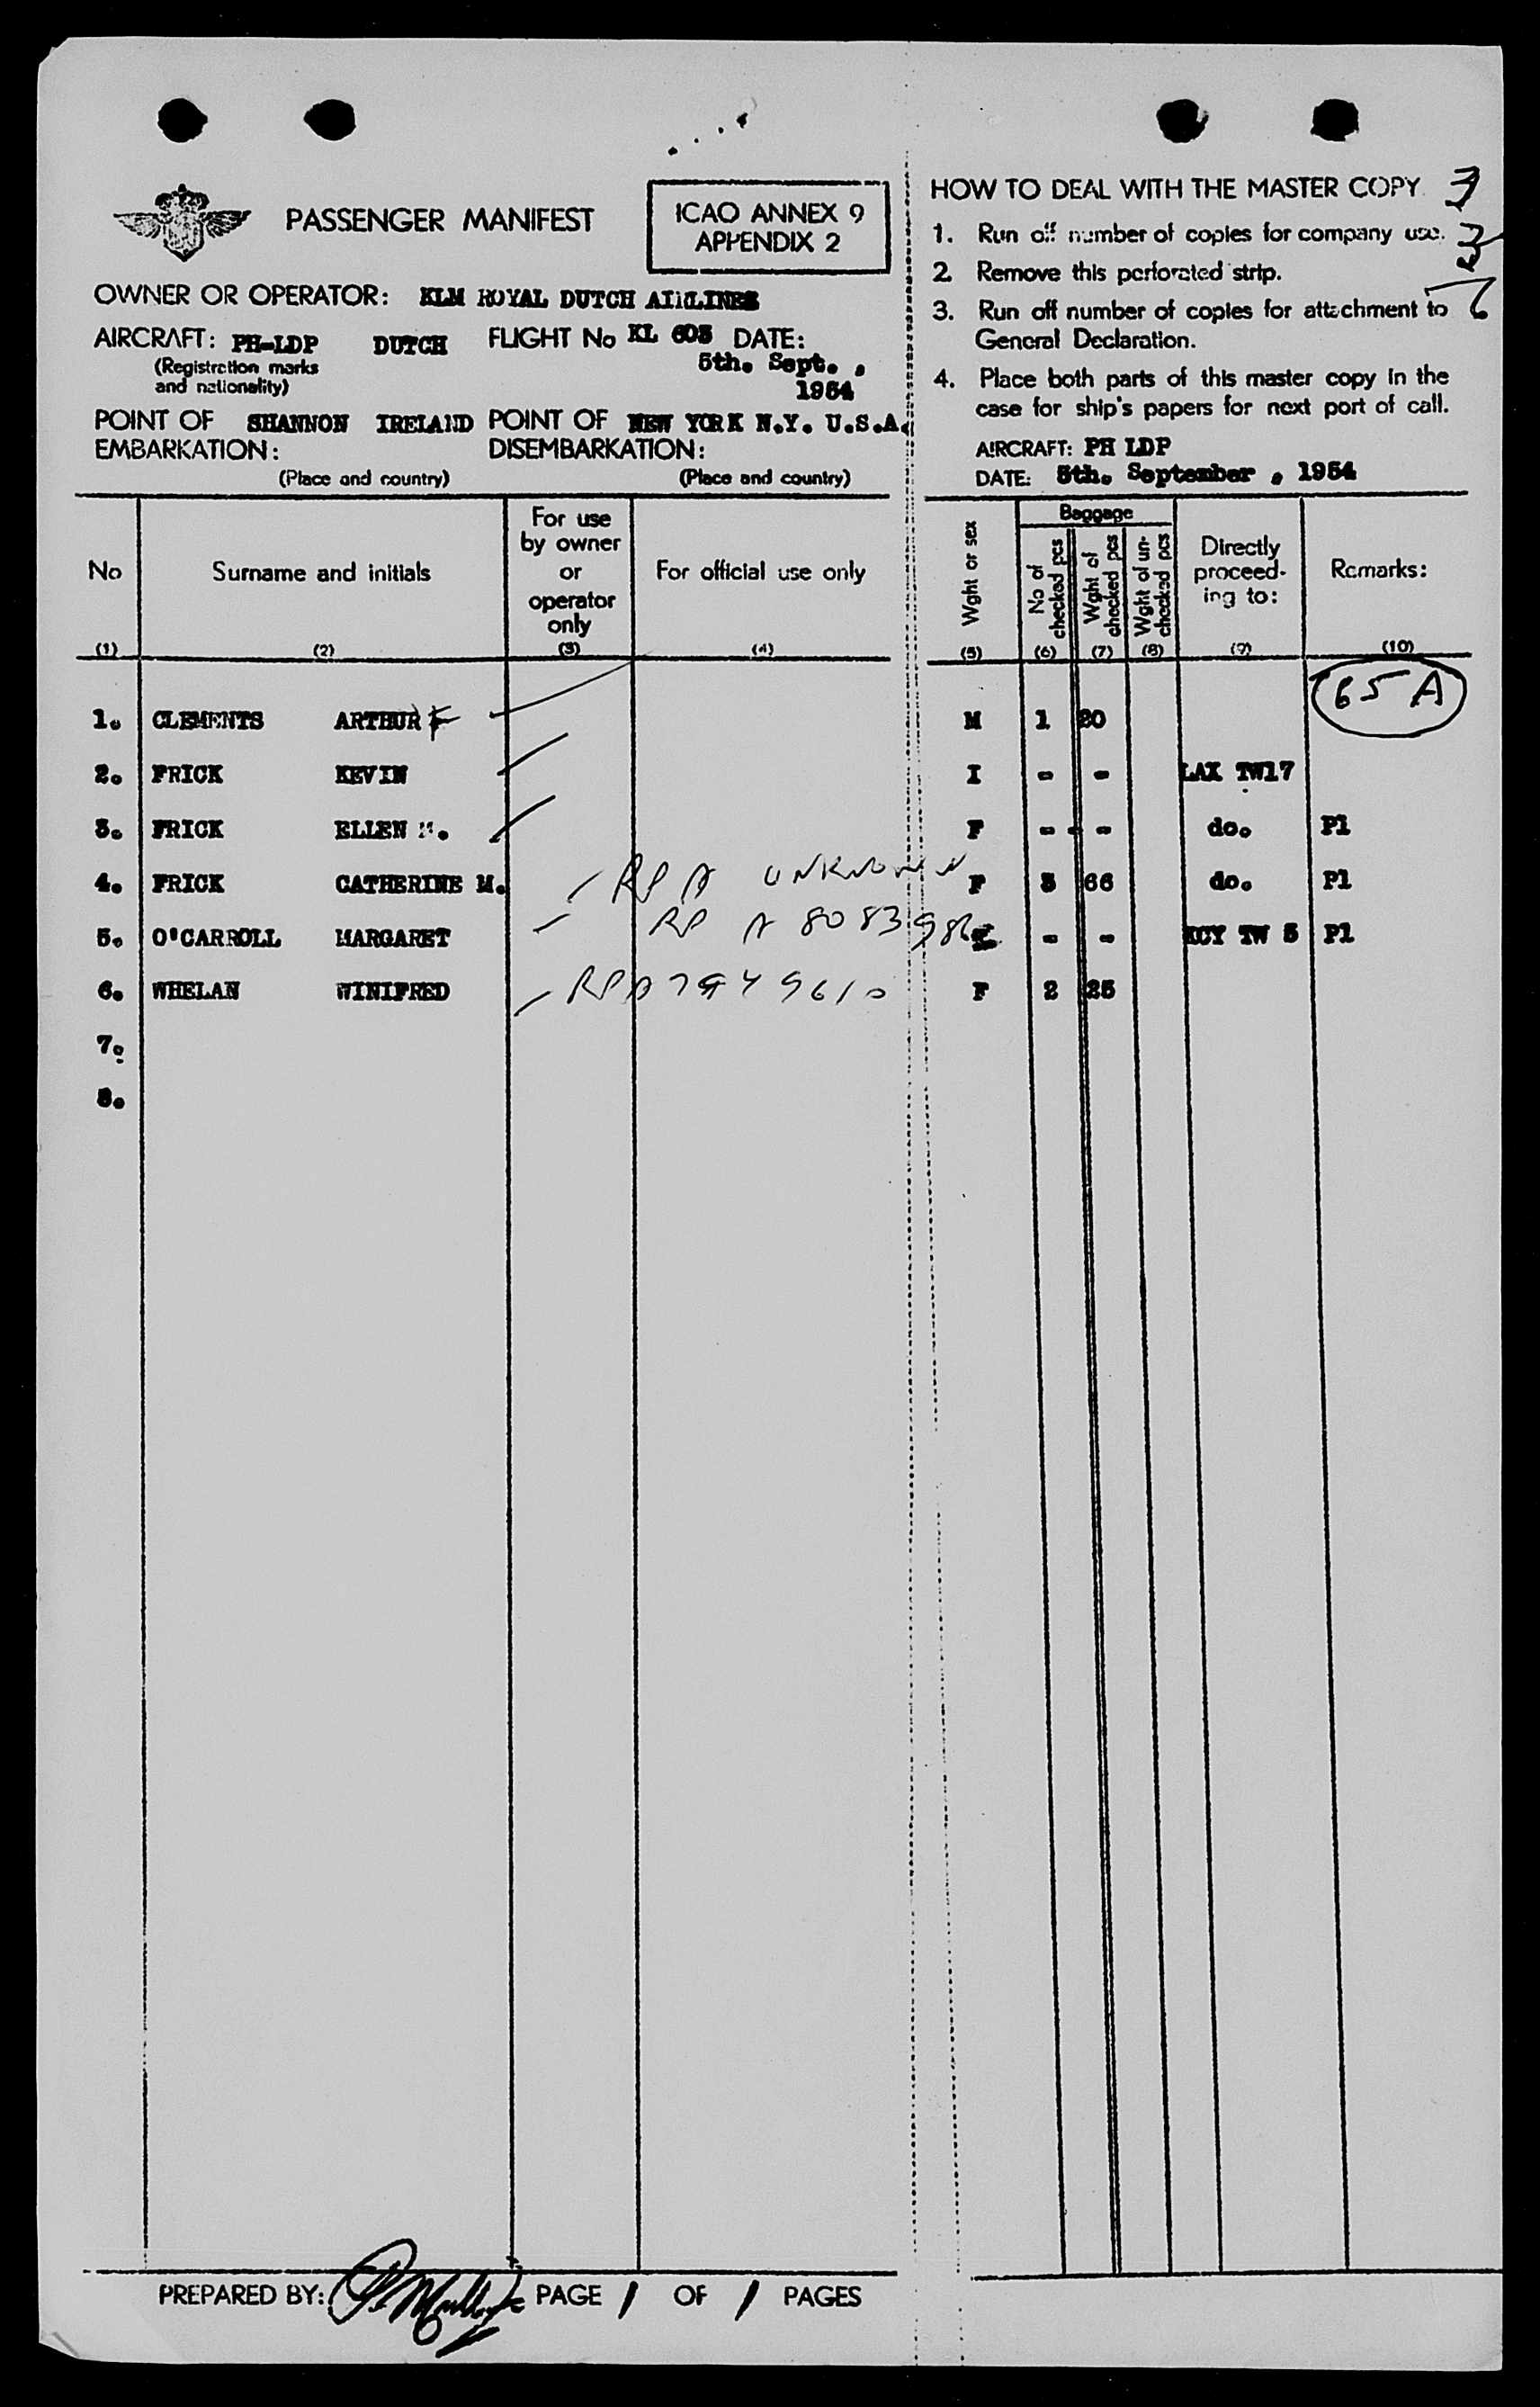 PASSENGER MANIFEST
ICAO ANNEX 9
APPENDIX 2
OWNER OR OPERATOR: KLM ROYAL DUTCH AIRLINES
AIRCRAFT: PH-LDP DUTCH FLIGHT No KL 603 DATE:
(Registration marks
and nationality)
5th. Sept. ,
1954
POINT OF SHANNON IRELAND POINT OF NEW YORK N.Y. U.S.A.
EMBARKATION: DISEMBARKATION:
(Place and country) (Place and country)
HOW TO DEAL WITH THE MASTER COPY
1. Run off number of copies for company use.
2. Remove this perforated strip.
3. Run off number of copies for attachment to
General Declaration.
4. Place both parts of this master copy in the
case for ship's papers for next port of call.
AIRCRAFT: PH LDP
DATE: 5th. September , 1954
No
(1)
Surname and initials
(2)
For use
by owner
or
operator
only
(3)
For official use only
(4)
Wght or sex
(5)
Baggage
No of
checked pcs
(6)
Wght of
checked pcs
(7)
Wght of un-
checked pcs
(8)
Directly
proceed-
ing to:
(9)
Remarks:
(10)
65 A
1. CLEMENTS ARTHUR F M 1 20
2. FRICK KEVIN I - - LAX TW17
3. FRICK ELLEN M. F - - do. P1
4. FRICK CATHERINE M. RP A UNKNOWN F 3 66 do. P1
5. O'CARROLL MARGARET RP A 8083986 - - KCY TW 3 P1
6. WHELAN WINIFRED RP A7949610 F 2 25
7.
8.
PREPARED BY: PAGE 1 OF 1 PAGES